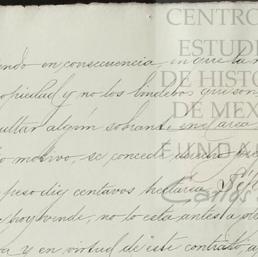 CENTRO
ESTUDI
DE HISTO
DE MÉX
FUNDA
Carlos
endo en consecuencia, en que la
opiedad y no los linderos que son
ultar algun sobrante en area
motivo, se concede
peso diez centavos hectaria
hoy vende, no lo esta antes a
y en virtud de este contrato, a